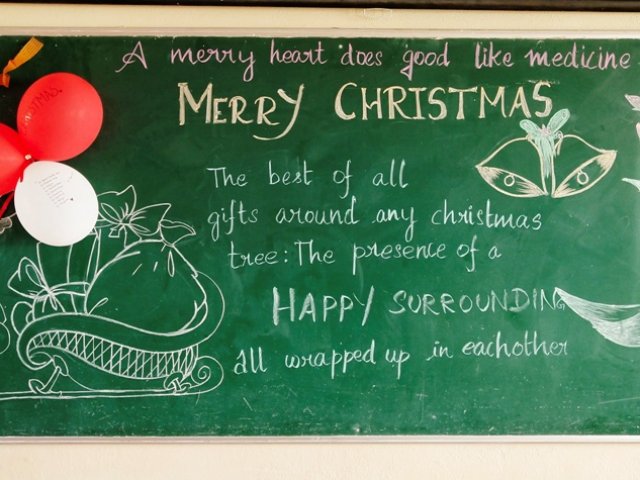 A merry heart does good like medicine
MERRY CHRISTMAS
The best of all
gifts around any christmas
tree: The presence of a
HAPPY SURROUNDING
all wrapped up in eachother